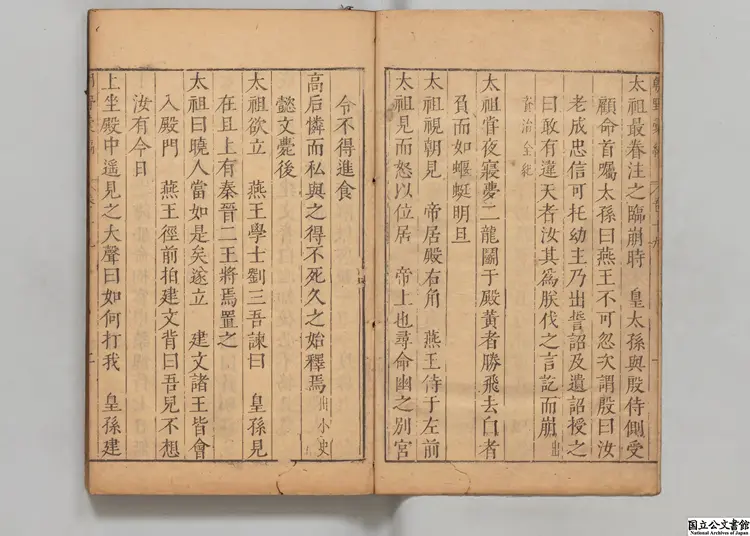 太祖最眷注之臨崩時　皇太孫與殷侍側受
顧命首囑太孫曰燕王不可忽次謂殷曰汝
老成忠信可托幼主乃出誓詔及遺詔授之
曰敢有違天者汝其爲朕伐之言訖而崩出
奮治全紀
太祖嘗夜寢夢二龍鬬于殿黃者勝飛去白者
負而如蝘蜓明旦
太祖視朝見　帝居殿右角　燕王侍于左前
太祖見而怒以位居　帝上也尋命幽之別宮
令不得進食
高后憐而私與之得不死久之始釋焉出小史
懿文薨後
太祖欲立　燕王學士劉三吾諫曰　皇孫見
在且上有秦晉二王將焉置之
太祖曰曉人當如是矣遂立　建文諸王皆會
入殿門　燕王徑前拍建文背曰吾兒不想
汝有今日
上坐殿中遥見之大聲曰如何打我　皇孫建
国立公文書館
National Archives of Japan